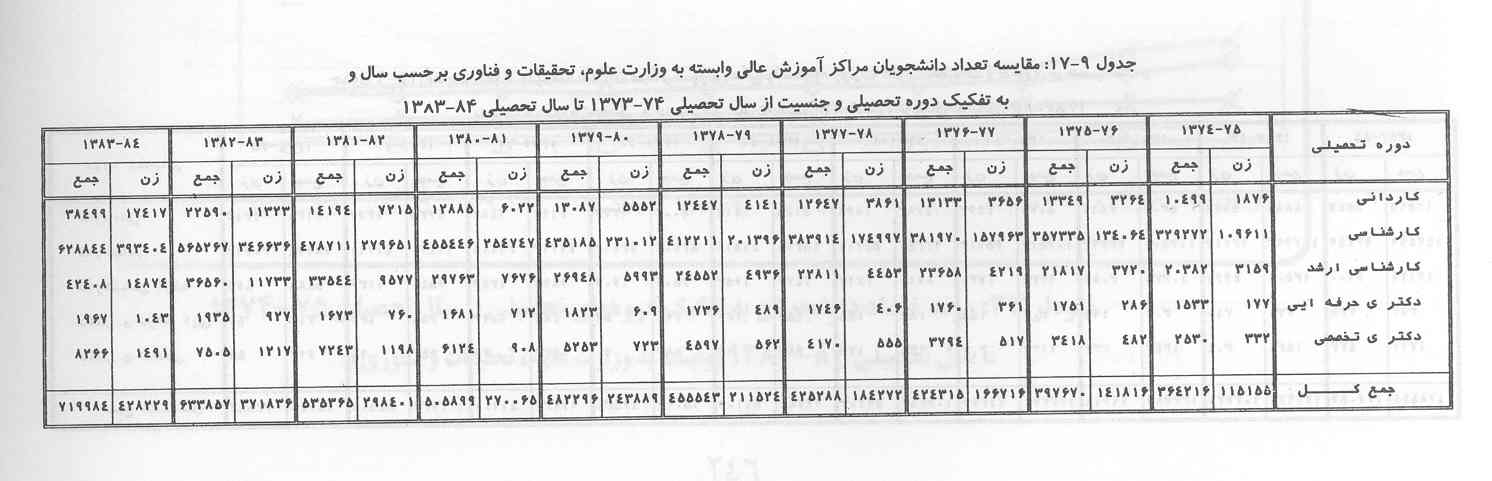 جدول ۹-۱۷: مقایسه تعداد دانشجویان مراکز آموزش عالی وابسته به وزارت علوم، تحقیقات و فناوری برحسب سال و
به تفکیک دوره تحصیلی و جنسیت از سال تحصیلی ۷۴-۱۳۷۳ تا سال تحصیلی ۸۴-۱۳۸۳
دوره تحصیلی ۱۳۷٤-۷۵ ۱۳۷۵-۷۶ ۱۳۷۶-۷۷ ۱۳۷۷-۷۸ ۱۳۷۸-۷۹ ۱۳۷۹-۸۰ ۱۳۸۰-۸۱ ۱۳۸۱-۸۲ ۱۳۸۲-۸۳ ۱۳۸۳-۸٤
زن جمع زن جمع زن جمع زن جمع زن جمع زن جمع زن جمع زن جمع زن جمع زن جمع
کاردانی ۱۸۷۶ ۱۰٤۹۹ ۳۲۶٤ ۱۳۳٤۹ ۳۶۵۶ ۱۳۱۳۳ ۳۸۶۱ ۱۲۶٤۷ ٤۱٤۱ ۱۲٤٤۷ ۵۵۵۲ ۱۳۰۸۷ ۶۰۲۲ ۱۲۸۸۵ ۷۲۱۵ ۱٤۱۹٤ ۱۱۳۲۳ ۲۲۵۹۰ ۱۷٤۱۷ ۳۸٤۹۹
کارشناسی ۱۰۹۶۱۱ ۳۲۹۲۷۲ ۱۳٤۰۶٤ ۳۵۷۳۳۵ ۱۵۷۹۶۳ ۳۸۱۹۷۰ ۱۷٤۹۹۷ ۳۸۳۹۱٤ ۲۰۱۳۹۶ ٤۱۲۲۱۱ ۲۳۱۰۱۲ ٤۳۵۱۸۵ ۲۵٤۷٤۷ ٤۵۵٤٤۶ ۲۷۹۶۵۱ ٤۷۸۷۱۱ ۳٤۶۶۳۶ ۵۶۵۲۶۷ ۳۹۳٤۰٤ ۶۲۸۸٤٤
کارشناسی ارشد ۳۱۵۹ ۲۰۳۸۲ ۳۷۲۰ ۲۱۸۱۷ ٤۲۱۹ ۲۳۶۵۸ ٤٤۵۳ ۲۲۸۱۱ ٤۹۳۶ ۲٤۵۵۲ ۵۹۹۳ ۲۶۹٤۸ ۷۶۷۶ ۲۹۷۶۳ ۹۵۷۷ ۳۳۵٤٤ ۱۱۷۳۳ ۳۶۵۶۰ ۱٤۸۷٤ ٤۲٤۰۸
دکتر ی حرفه ایی ۱۷۷ ۱۵۳۳ ۲۸۶ ۱۷۵۱ ۳۶۱ ۱۷۶۰ ٤۰۶ ۱۷٤۶ ٤۸۹ ۱۷۳۶ ۶۰۹ ۱۸۲۳ ۷۱۲ ۱۶۸۱ ۷۶۰ ۱۶۷۳ ۹۲۷ ۱۹۳۵ ۱۰٤۳ ۱۹۶۷
دکتر ی تخصصی ۳۳۲ ۲۵۳۰ ٤۸۲ ۳٤۱۸ ۵۱۷ ۳۷۹٤ ۵۵۵ ٤۱۷۰ ۵۶۲ ٤۵۹۷ ۷۲۳ ۵۲۵۳ ۹۰۸ ۶۱۲٤ ۱۱۹۸ ۷۲٤۳ ۱۲۱۷ ۷۵۰۵ ۱٤۹۱ ۸۲۶۶
جمع کـــــل ۱۱۵۱۵۵ ۳۶٤۲۱۶ ۱٤۱۸۱۶ ۳۹۷۶۷۰ ۱۶۶۷۱۶ ٤۲٤۳۱۵ ۱۸٤۲۷۲ ٤۲۵۲۸۸ ۲۱۱۵۲٤ ٤۵۵۵٤۳ ۲٤۳۸۸۹ ٤۸۲۲۹۶ ۲۷۰۰۶۵ ۵۰۵۸۹۹ ۲۹۸٤۰۱ ۵۳۵۳۶۵ ۳۷۱۸۳۶ ۶۳۳۸۵۷ ٤۲۸۲۲۹ ۷۱۹۹۸٤